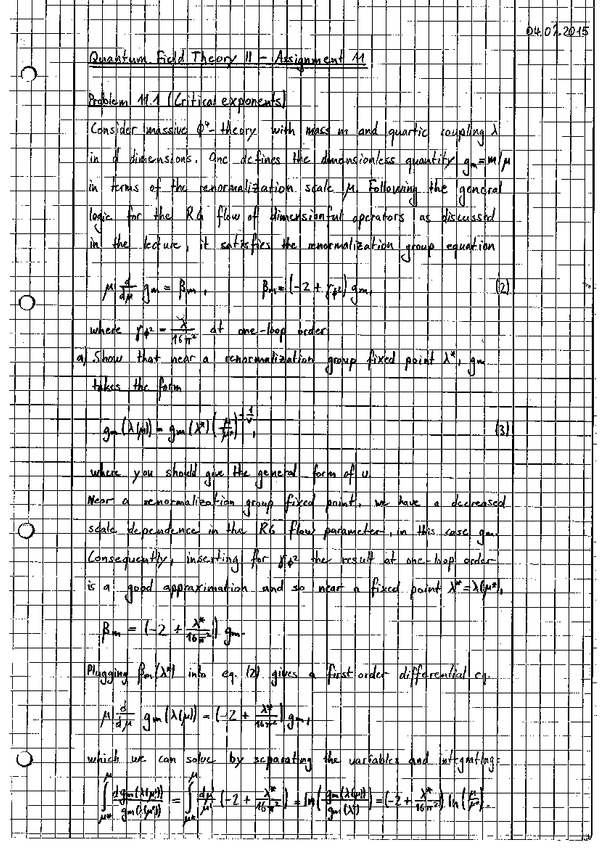 04.07.2015
Quantum Field Theory II - Assignment 11
Problem 11.1 (Critical exponents)
Consider massive ϕ⁴-theory with mass m and quartic coupling λ
in d dimensions. One defines the dimensionless quantity gₘ = m/μ
in terms of the renormalization scale μ. Following the general
logic for the RG flow of dimensionful operators as discussed
in the lecture, it satisfies the renormalization group equation
μ d/dμ gₘ = βₘ, βₘ = (-2 + γ_ϕ²) gₘ, (2)
where γ_ϕ² = λ/16π² at one-loop order
a) Show that near a renormalization group fixed point λ*, gₘ
takes the form
gₘ(λ(μ)) = gₘ(λ*) (μ/μ*)^(-1/ν), (3)
where you should give the general form of ν.
Near a renormalization group fixed point, we have a decreased
scale dependence in the RG flow parameter, in this case gₘ.
Consequently, inserting for γ_ϕ² the result at one-loop order
is a good approximation and so near a fixed point λ* = λ(μ*),
βₘ = (-2 + λ*/16π²) gₘ.
Plugging βₘ(λ*) into eq. (2) gives a first order differential eq.
μ d/dμ gₘ(λ(μ)) = (-2 + λ*/16π²) gₘ,
which we can solve by separating the variables and integrating:
∫_μ*^μ dgₘ(λ(μ'))/gₘ(λ(μ')) = ∫_μ*^μ dμ'/μ' (-2 + λ*/16π²) = ln(gₘ(λ(μ))/gₘ(λ*)) = (-2 + λ*/16π²) ln(μ/μ*).